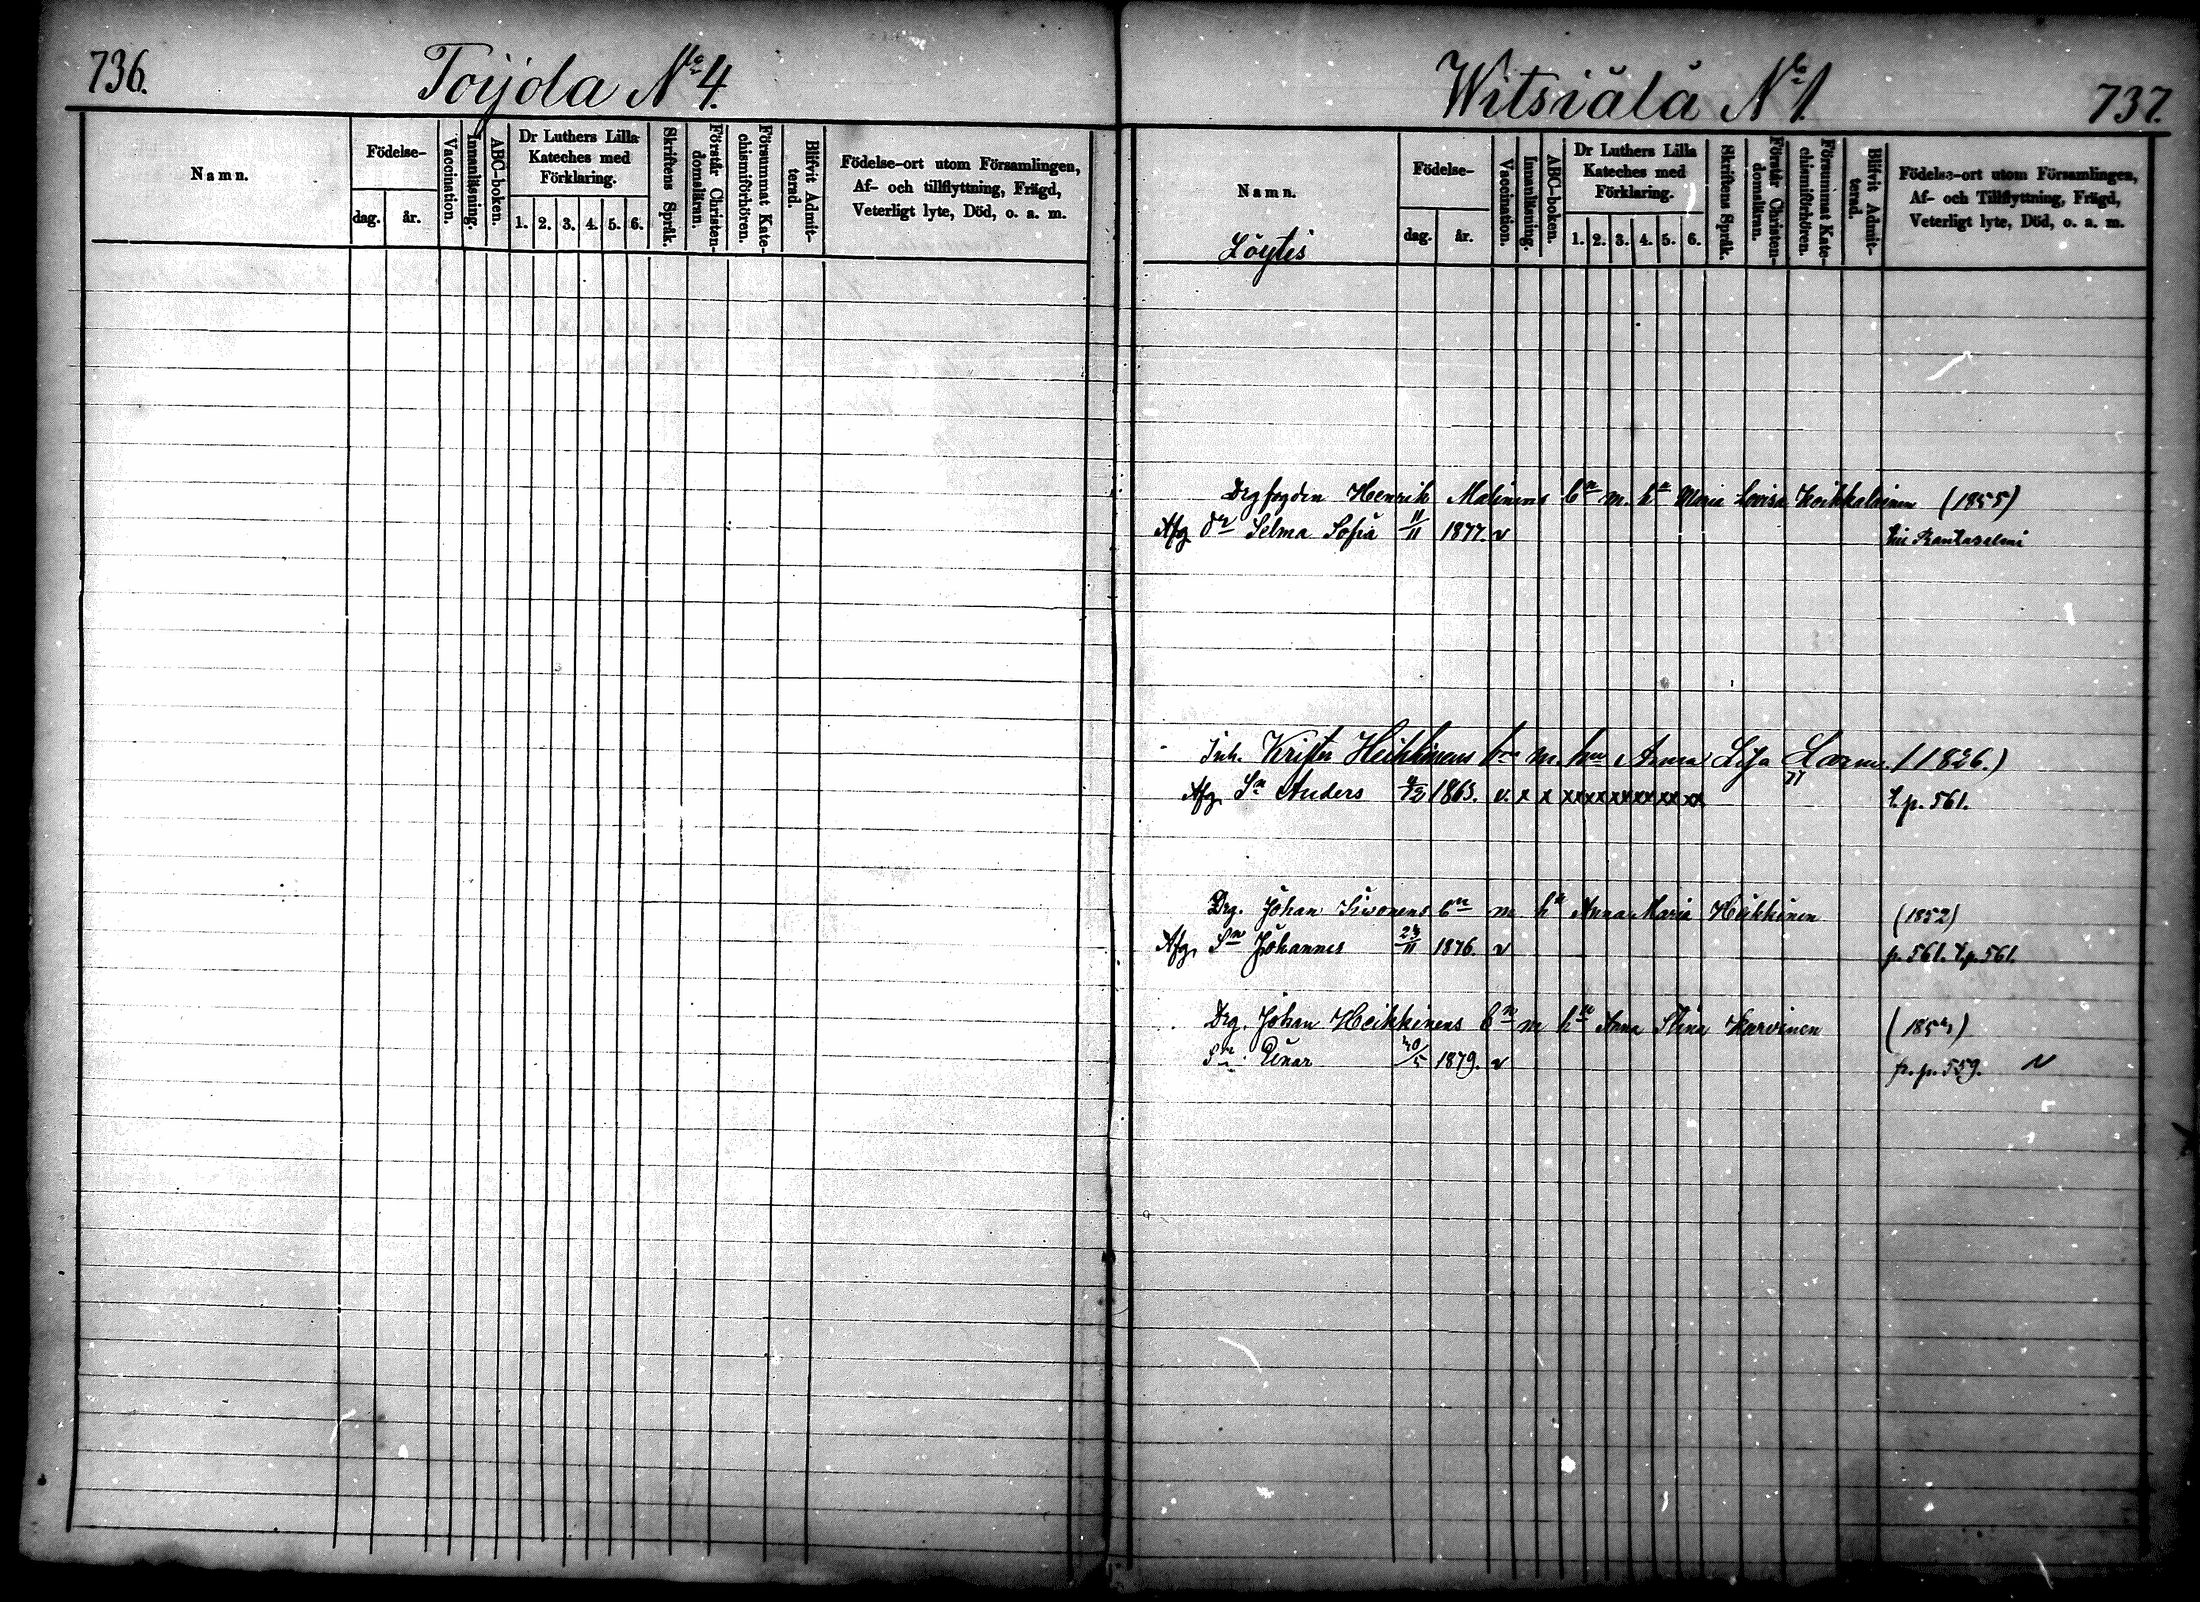 736.
Toijola No 4.
Namn.
Födelse-
dag. år.
Vaccination.
Innanläsning.
ABC-boken.
Dr Luthers Lilla
Kateches med
Förklaring.
1. 2. 3. 4. 5. 6.
Skriftens Språk.
Förstår Christen-
domsläran.
Försummat Kate-
chismiförhören.
Blifvit Admit-
terad.
Födelse-ort utom Församlingen,
Af- och tillflyttning, Frägd,
Veterligt lyte, Död, o. a. m.
Witsiälä No 1.
737.
Namn.
Löytis
Födelse-
dag. år.
Vaccination.
Innanläsning.
ABC-boken.
Dr Luthers Lilla
Kateches med
Förklaring.
1. 2. 3. 4. 5. 6.
Skriftens Språk.
Förstår Christen-
domsläran.
Försummat Kate-
chismiförhören.
Blifvit Admit-
terad.
Födelse-ort utom Församlingen,
Af- och Tillflyttning, Frägd,
Veterligt lyte, Död, o. a. m.
Henrik Malinens bn m. hu Maria Lovisa Koikkalainen (1855)
Afg dr Selma Sofia 11/11 1877. v Rantasalmi
Inh. Krister Heikkinens brn m. hu Anna Lisa (1826.)
Afg. Sn Anders 9/12 1863. v. x x xx xx xx xx xx xx t. p. 561.
Drg. Johan bn m hu Anna Maria Heikkinen (1852)
Afg. Sn Johannes 23/11 1876. v p. 561. t. p. 561.
Drg. Johan Heikkinens bn m hu Anna Stina Karvinen
Sn. Einar 1879. v fr. p. 559. N